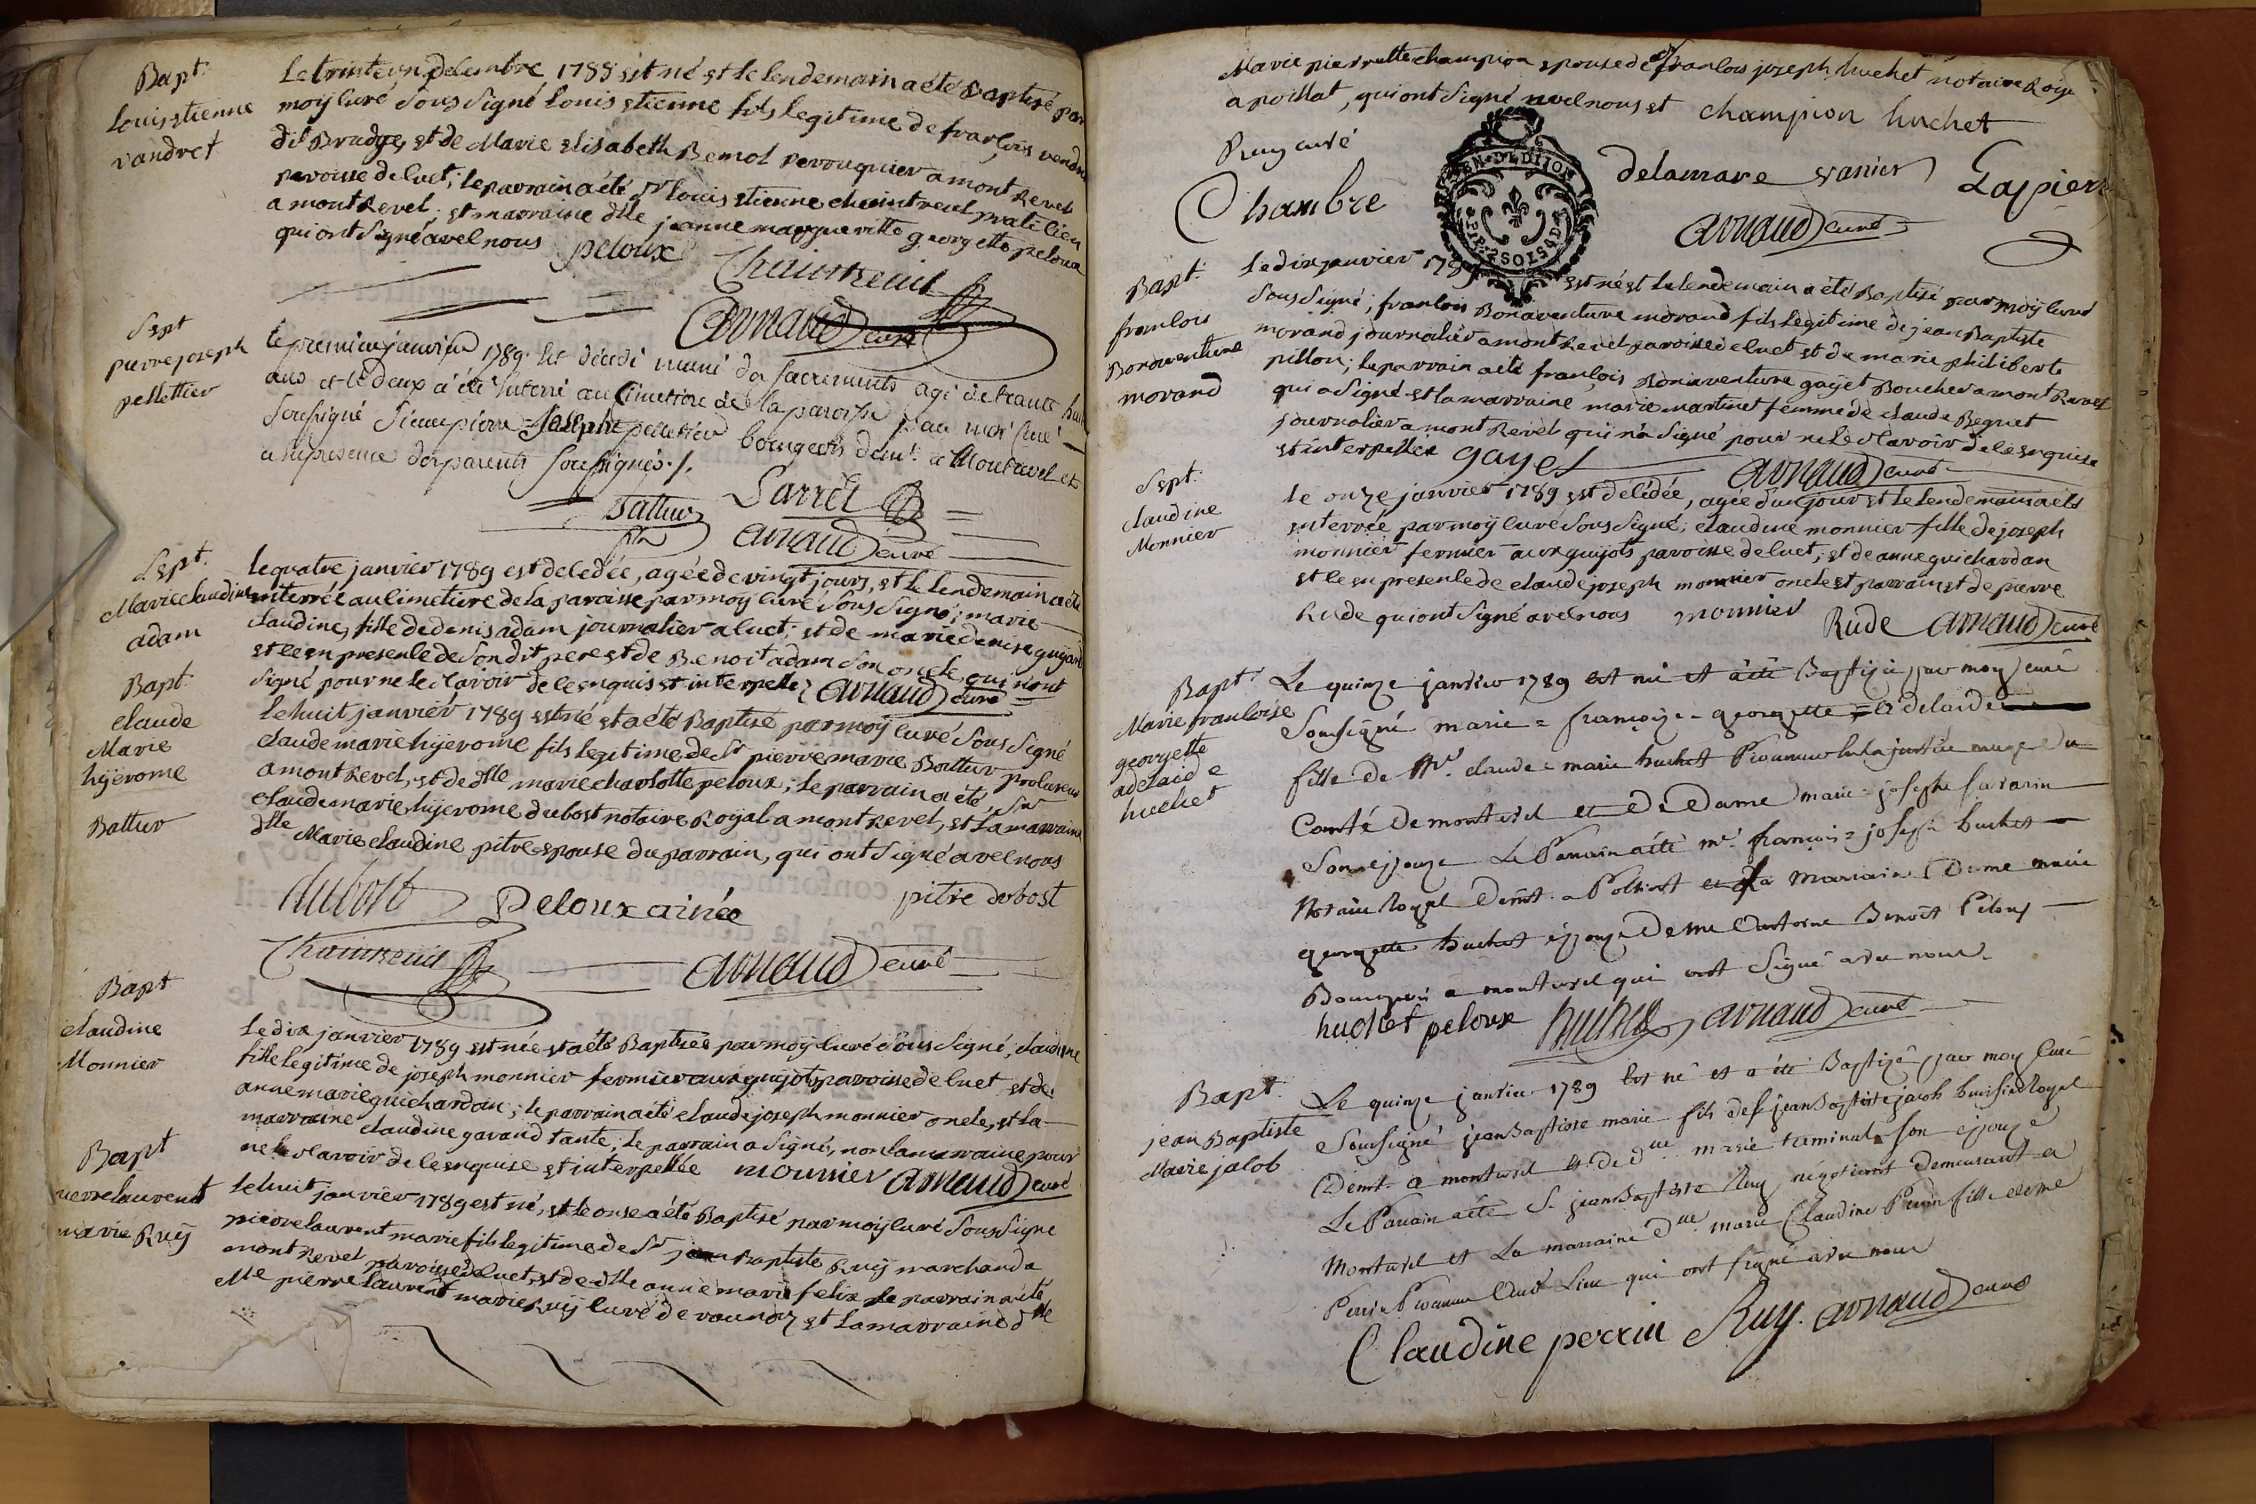 Bapt.
Louis etienne
vandret
Le trinte un decembre 1788 est né et le lendemain a été Baptisé par
moÿ curé sous signé louis etienne fils legitime de françois vendre
dit Brudge, et de Marie elisabeth Bemol perruquier a mont Revel
paroisse de cuet; le parrain a été Sr louis etienne chaintreuil
a mont Revel; et marraine dlle jeanne margueritte georgette peloux
qui ont signé avec nous peloux
Chaintreuil
arnaud curé
Sept
pierre joseph
pellettier
le premier janvier 1789. Est décédé muni des sacrements agé de trante huit
ans et le deux a été enterré au Cimetière de la paroisse par moi curé
soussigné Sieur pierre Joseph pelletier bourgeois demt. a Montrevel et
en presence des parents soussignés ./.
Battur Sarrét
arnaud curé
Sept.
Marie claudine
adam
le quatre janvier 1789 est decedée, agée de vingt jours, et le lendemain a été
enterrée au cimetiere de la paroisse par moÿ curé sous signé; marie
claudine, fille de denis adam journalier a cuet; et de marie denise guÿard
et ce en presence de son dit pere et de Benoit adam son oncle qui n'ont
signé pour ne le scavoir de ce enquis et interpellé arnaud curé
Bapt.
claude
Marie
hÿerome
Battur
le huit janvier 1789 est né et a été Baptisé par moÿ curé sous signé
claude marie hÿerome fils legitime de Sr pierre marie Battur procureur
a mont Revel, et de dlle marie charlotte peloux; le parrain a été Sr
claude marie hÿerome dubost notaire Roÿal a mont Revel, et la marraine
dlle Marie claudine pitre epouse du parrain, qui ont signé avec nous
dubost Peloux ainée pitre dubost
Chaintreuil arnaud curé
Bapt
claudine
Monnier
le dix janvier 1789 est née et a été Baptisée par moÿ curé sous signé, claudine
fille legitime de joseph monnier fermier aux guÿots, paroisse de cuet et de
anne marie guichardan; le parrain a été claude joseph monnier oncle, et la
marraine claudine gavand tante; le parrain a signé, non la marraine pour
ne le scavoir de ce enquise et interpellée monnier arnaud curé
Bapt
pierre laurent
marie Ruÿ
le huit janvier 1789 est né, et le onse a été Baptisé par moÿ curé sous signé
pierre laurent marie fils legitime de Sr jean Baptiste Ruÿ marchand a
mont Revel paroisse de cuet, et de dlle anne marie felix le parrain a été
Me pierre laurent marie Ruÿ curé de vounoz et la marraine dlle
Marie pierrette champion epouse de Sr françois joseph huchet notaire Roÿal
a poillat, qui ont signé avec nous et champion huchet
Ruy curé
Chambre
GEN. DE DIJON
delamare vanier Laspierre
arnaud curé
Bapt.
francois
Bonaventure
morand
Le dix janvier 1789 est né et le lendemain a été Baptisé par moÿ curé
sous signé; francois Bonaventure morand fils legitime de jean Baptiste
morand journalier a mont Revel paroisse de cuet et de marie philiberte
pillon; le parrain a été françois Bonaventure gaÿet Boucher a mont Revel
qui a signé et la marraine marie martinet femme de claude Beguet
journalier a mont Revel qui n'a signé pour ne le scavoir de ce enquise
et interpellée gayet arnaud curé
Sept.
claudine
Monnier
le onze janvier 1789 est décédée, agée d'un jour et le lendemain a été
enterrée par moÿ curé sous signé; claudine monnier fille de joseph
monnier fermier aux guÿots paroisse de cuet; et de anne guichardan
et ce en presence de claude joseph monnier oncle et parrain et de pierre
Rude qui ont signé avec nous monnier Rude arnaud curé
Bapt.
Marie francoise
georgette
adelaide
huchet
Le quinze janvier 1789 est née et a été Baptisée par moy curé
soussigné marie = françoize = georgette = adelaide
fille de Mr. claude = marie huchet Procureur en la justice mage du
Comté de montrevel et de Dame marie = josephe savarin
son epouze Le Parrain a été mr. françois = joseph huchet
Notaire Royal demt. a Polliat et la Marraine Dame marie
georgette huchet épouze de me Antoine Benoît Peloux
Bourgeois a montrevel qui ont signé avec nous.
huchet peloux huchet arnaud curé
Bapt.
jean Baptiste
Marie jacob
Le quinze janvier 1789 est né et a été Baptizé par moy Curé
soussigné jean Baptiste marie fils de Sr jean Baptiste jacob huissier Royal
demt. a montrevel et de dlle marie son epouze
Le Parrain a été Sr. jean Baptiste Ruy négotiant demeurant a
Montrevel et La marraine dlle marie Claudine Perrin fille de me
Perrin Procureur dud. Lieu qui ont signé avec nous
Claudine perrin Ruy. arnaud curé